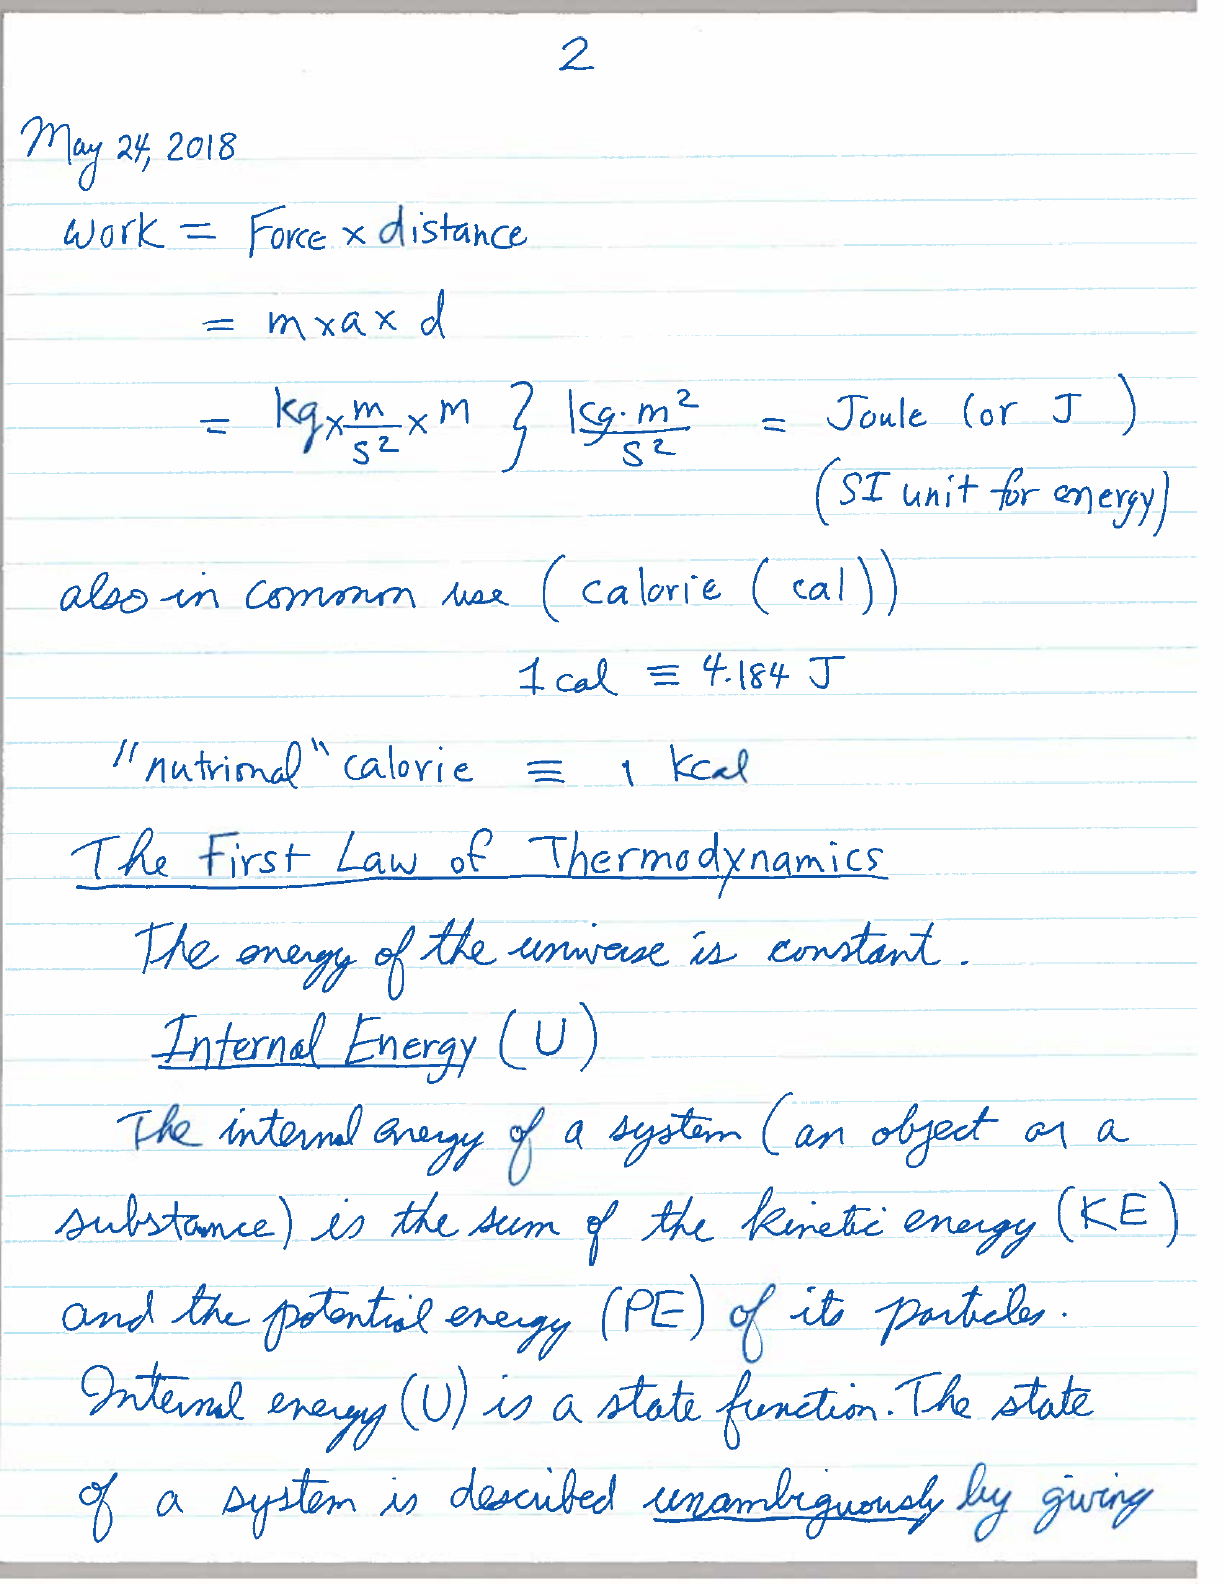 2
May 24, 2018
work = Force x distance
= m x a x d
= kg x m/s² x m } kg·m²/s² = Joule (or J)
(SI unit for energy)
also in common use (calorie (cal))
1 cal ≡ 4.184 J
"nutrional" calorie ≡ 1 kcal
The First Law of Thermodynamics
The energy of the universe is constant.
Internal Energy (U)
The internal energy of a system (an object or a
substance) is the sum of the kinetic energy (KE)
and the potential energy (PE) of its particles.
Internal energy (U) is a state function. The state
of a system is described unambiguously by giving